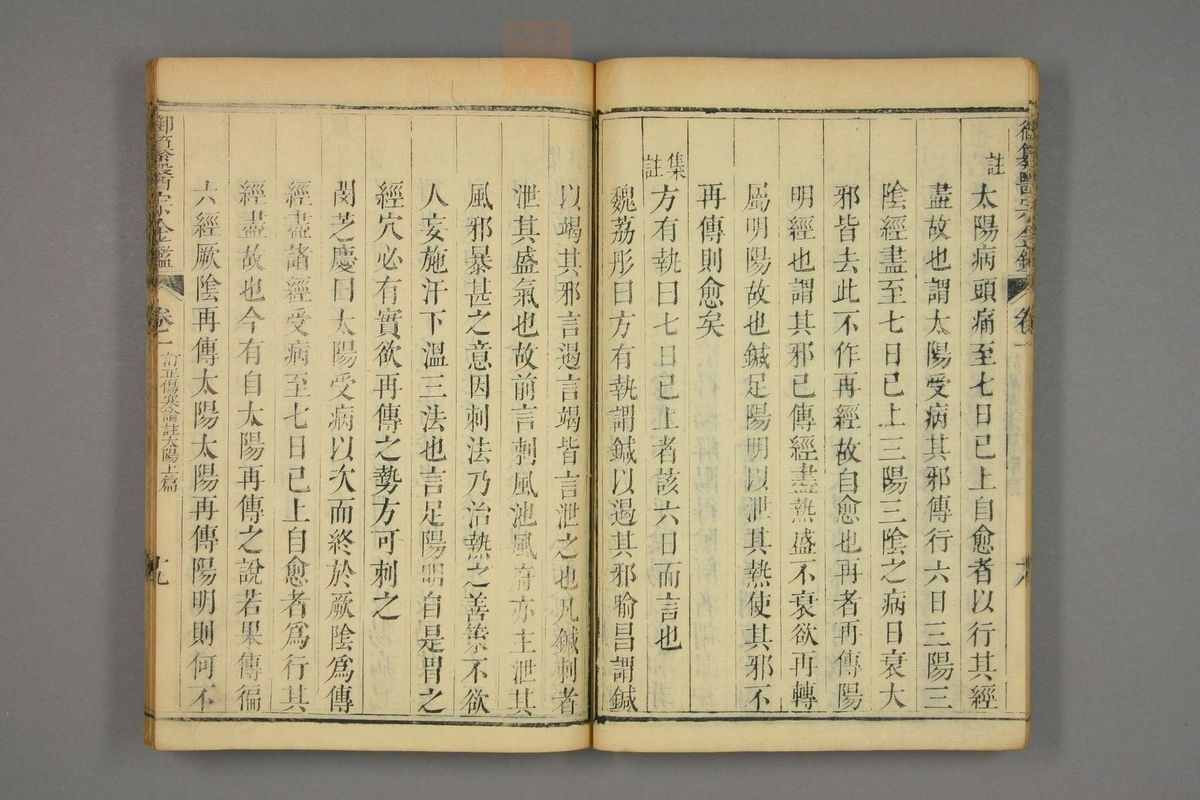 御纂醫宗金鑑
卷一
十八
註 太陽病頭痛至七日已上自愈者以行其經
盡故也謂太陽受病其邪傳行六日三陽三
陰經盡至七日已上三陽三陰之病日衰大
邪皆去此不作再經故自愈也再者再傳陽
明經也謂其邪已傳經盡熱盛不衰欲再轉
屬明陽故也鍼足陽明以泄其熱使其邪不
再傳則愈矣
集註 方有執曰七日已上者該六日而言也
魏荔彤曰方有執謂鍼以遏其邪喻昌謂鍼
以竭其邪言遏言竭皆言泄之也凡鍼刺者
泄其盛氣也故前言刺風池風府亦主泄其
風邪暴甚之意因刺法乃治熱之善策不欲
人妄施汗下溫三法也言足陽明自是胃之
經穴必有實欲再傳之勢方可刺之
閔芝慶曰太陽受病以次而終於厥陰爲傳
經盡諸經受病至七日已上自愈者爲行其
經盡故也今有自太陽再傳之說若果傳徧
六經厥陰再傳太陽太陽再傳陽明則何不
御纂醫宗金鑑
卷一
訂正傷寒論註太陽上篇
十九